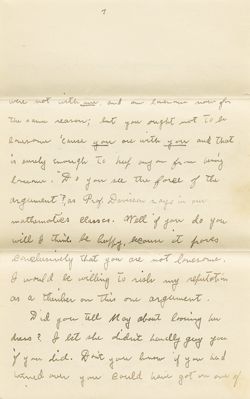 7
were not with me, and am lonesome now for
the same reason; but you ought not to be
lonesome 'cause you are with you and that
is surely enough to keep anyone from being
lonesome. "Do you see the force of the
argument?" as Prof. Davison says in our
mathematics classes. Well if you do you
will I think be happy, because it proves
conclusively that you are not lonesome.
I would be willing to risk my reputation
as a thinker on this one argument.
Did you tell May about loosing her
dress? I bet she didn't hardly give you
if you did. Don't you know if you had
turned over you could have got in one of